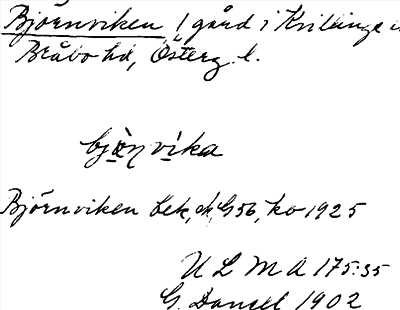 Björnviken 1 gård i Kvillinge
Bråbo hd, Österg. l.
bjö̀ṇvi̱ka
Björnviken bek, ck, G56, ko 1925
U L M A 175:35
G. Danell 1902